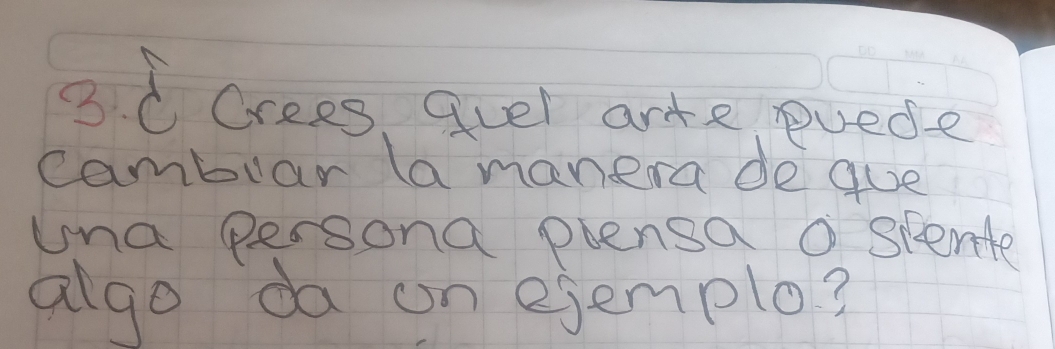 3. ¿ Crees quel arte puede
cambiar la manera de que
una persona piensa o siente
algo da un ejemplo?